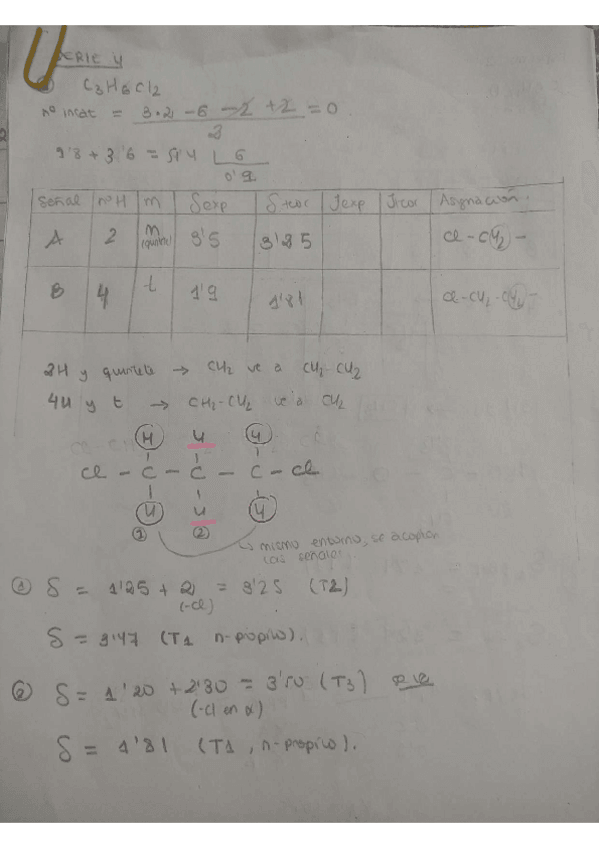 SERIE 4
C3H6Cl2
nº insat = 3·2 - 6 - 2 + 2 = 0
2
1'8 + 3'6 = 5'4 | 6
0'9
Señal nºH m δexp δtcor Jexp Jtcor Asignación
A 2 m (quintete) 3'5 3'25 Cl - CH2 -
B 4 t 1'9 1'81 Cl-CH2-CH2-
2H y quintete → CH2 ve a CH2 CH2
4H y t → CH2-CH2 ve a CH2
H H H
Cl - C - C - C - Cl
H H H
① ②
↳ mismo entorno, se acoplan
las señales.
① δ = 1'25 + 2 = 3'25 (T2)
(-Cl)
δ = 3'47 (T1 n-propilo).
② δ = 1'20 + 2'30 = 3'50 (T3)
(-Cl en α)
δ = 1'81 (T1, n-propilo).